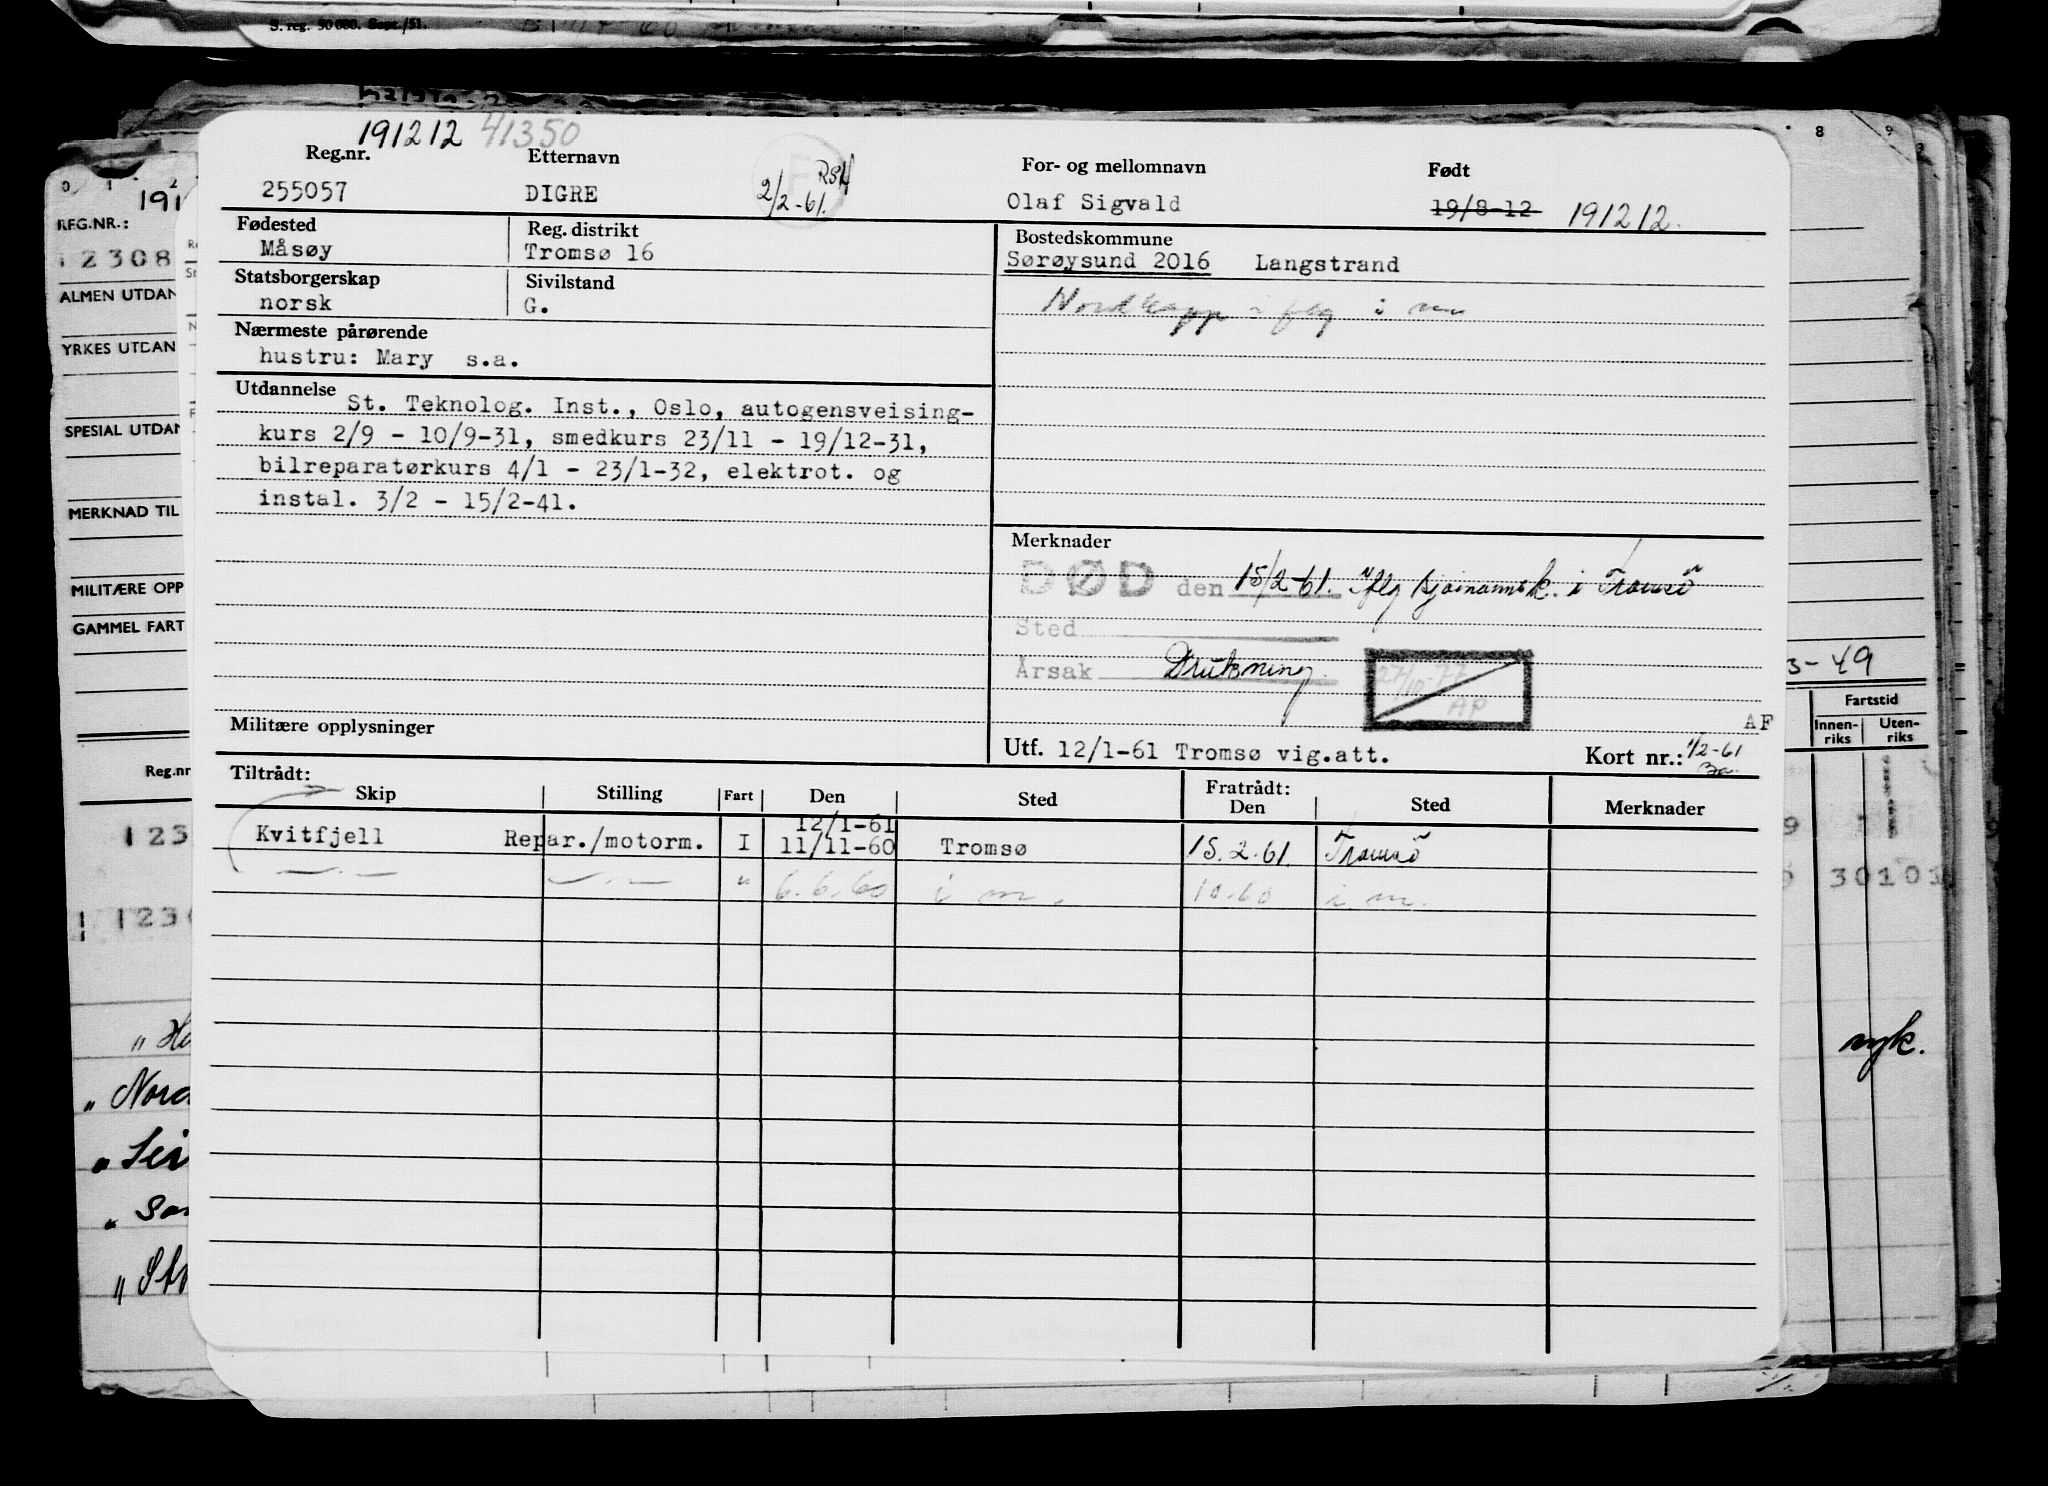 S. reg. 50 000. Sept./51.
191212 41350
Reg.nr. Etternavn For- og mellomnavn Født
255057 DIGRE 2/2-61. Olaf Sigvald 19/8-12 191212.
Fødested Reg. distrikt Bostedskommune
Måsøy Tromsø 16 Sørøysund 2016 Langstrand
Statsborgerskap Sivilstand
norsk G.
Nordkapp iflg i m
Nærmeste pårørende
hustru: Mary s.a.
Utdannelse St. Teknolog. Inst., Oslo, autogensveising-
kurs 2/9 - 10/9-31, smedkurs 23/11 - 19/12-31,
bilreparatørkurs 4/1 - 23/1-32, elektrot. og
instal. 3/2 - 15/2-41.
Merknader
DØD den 15/2-61. iflg i Tromsø
Sted
Årsak Drukning
27/10-77
AP
AF
Militære opplysninger
Utf. 12/1-61 Tromsø vig.att. Kort nr.: 1/2-61
Tiltrådt: Fratrådt:
Skip Stilling Fart Den Sted Den Sted Merknader
12/1-61
Kvitfjell Repar./motorm. I 11/11-60 Tromsø 15.2.61. Tromsø
— " — — " — " 6.6.60 i m. 10.60 i m.
0 1 2
191
REG.NR.:
12308
ALMEN UTDAN
YRKES UTDAN
SPESIAL UTDAN
MERKNAD TIL
MILITÆRE OPP
GAMMEL FART
Reg.nr
123
123
" Nord
8 9
3-49
Fartstid
Innen- Uten-
riks riks
9
30101